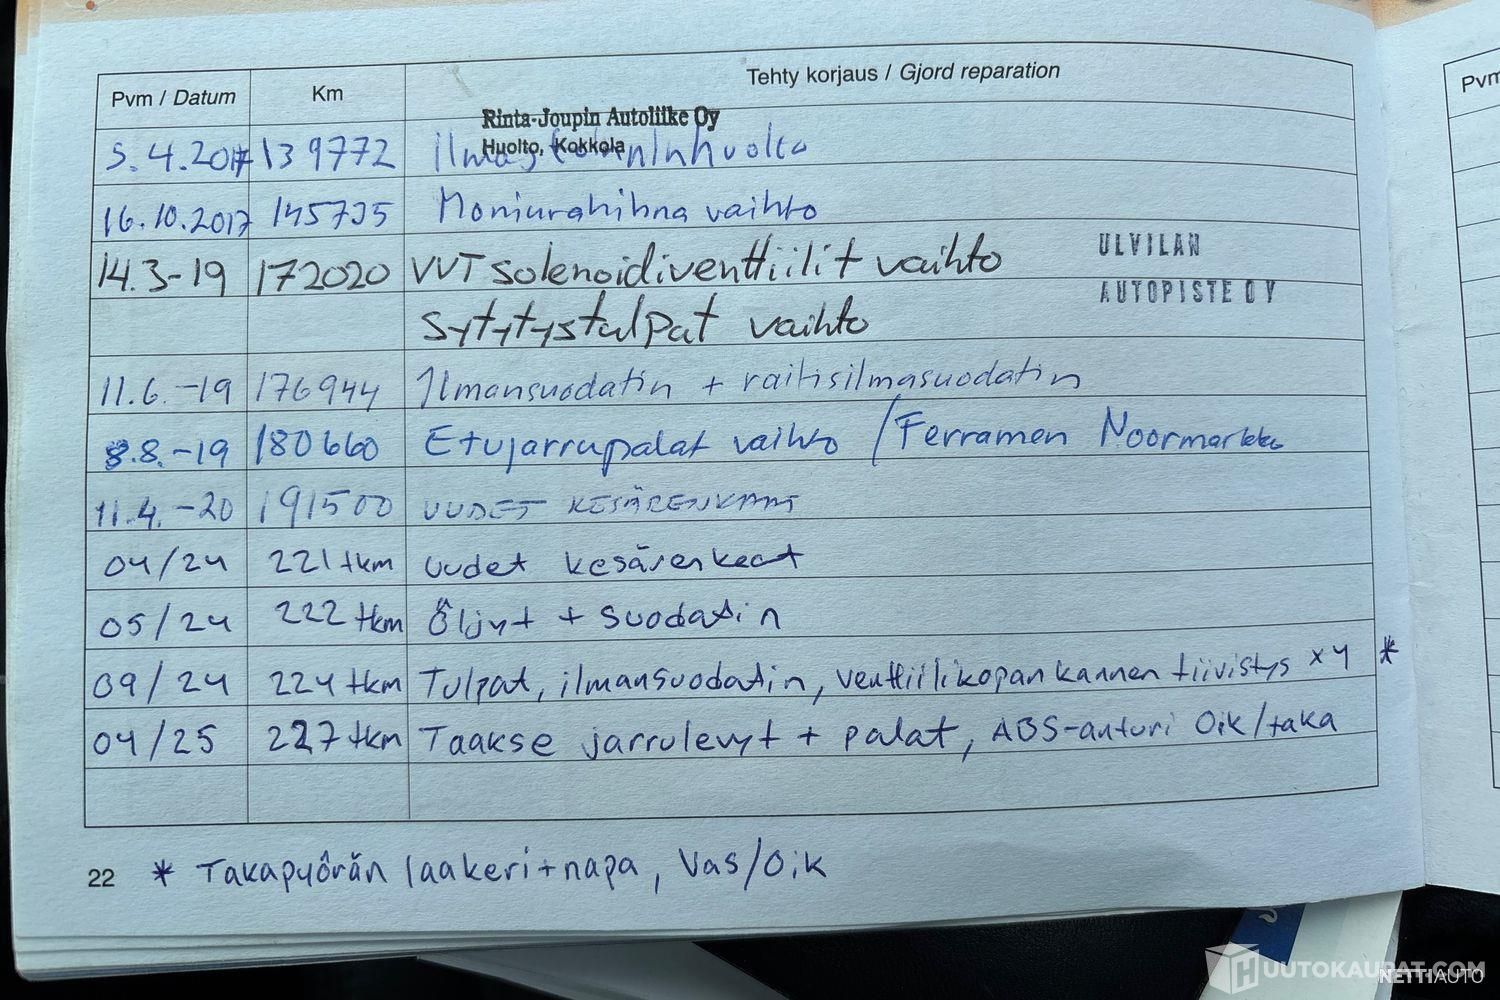 Pvm / Datum Km Tehty korjaus / Gjord reparation Pvm
Rinta-Joupin Autoliike Oy
Huolto, Kokkola
5.4.2017 139772 ilmastoinninhuolto
16.10.2017 145735 Moniurahihna vaihto
14.3-19 172020 VVT solenoidiventtiilit vaihto ULVILAN
sytytystulpat vaihto AUTOPISTE OY
11.6.-19 176944 Ilmansuodatin + raitisilmasuodatin
8.8.-19 180660 Etujarrupalat vaihto / Ferramen Noormarkku
11.4.-20 191500 UUDET KESÄRENKAAT
04/24 221 tkm Uudet kesärenkaat
05/24 222 tkm Öljyt + suodatin
09/24 224 tkm Tulpat, ilmansuodatin, venttiilikopan kannen tiivistys x4 *
04/25 227 tkm Taakse jarrulevyt + palat, ABS-anturi Oik/taka
22 * Takapyörän laakeri+napa, Vas/Oik
HUUTOKAUPAT.COM
NETTIAUTO